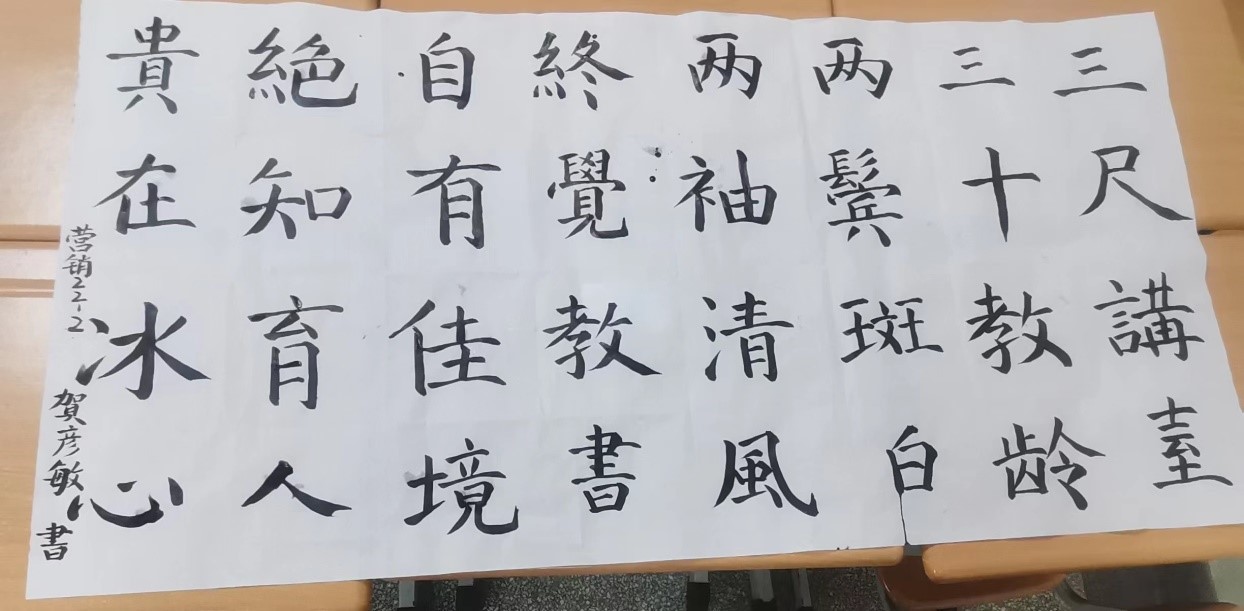 三尺講臺
三十教龄
两鬓斑白
两袖清風
終覺教書
自有佳境
絶知育人
貴在冰心
营销22-2 賀彦敏 書